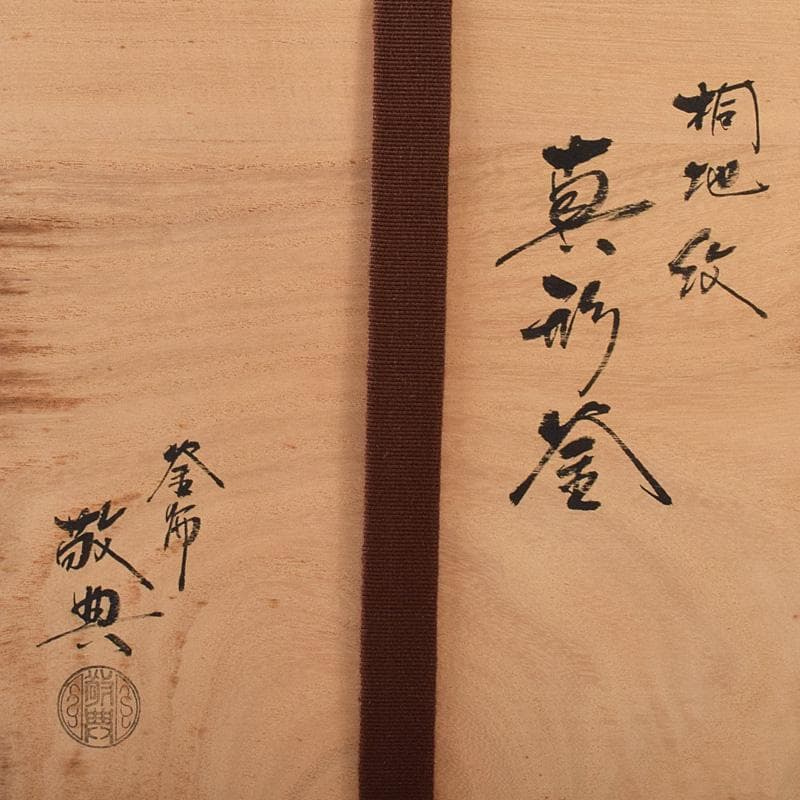 桐地紋
真形釜
釜師
敬典
敬典